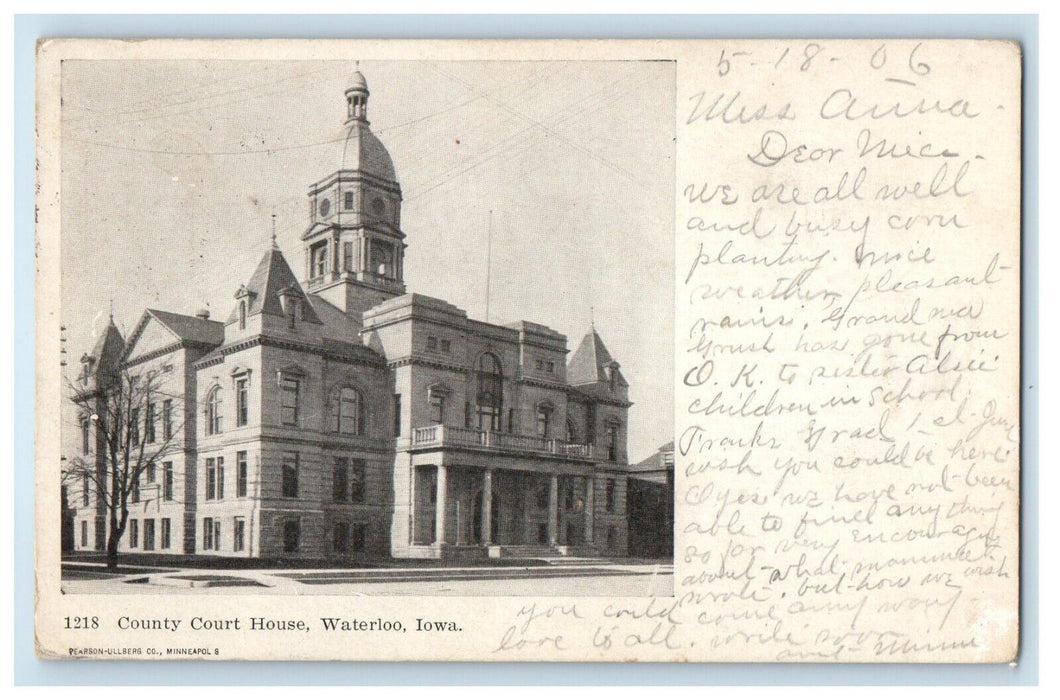 5-18-06
Miss Anna.
Dear Niece.
we are all well
and busy corn
planting. nice
weather pleasant
rains. Grandma
Grush has gone from
O. K. to sister Alsie
children in School.
Franks Grad 1st Jun
wish you could be here
O yes. we have not been
able to find anything
so far very encouraging
about what mamma
wrote. but how we wish
you could come any way
love to all. write soon
aunt Minnie
1218 County Court House, Waterloo, Iowa.
PEARSON-ULLBERG CO., MINNEAPOLIS